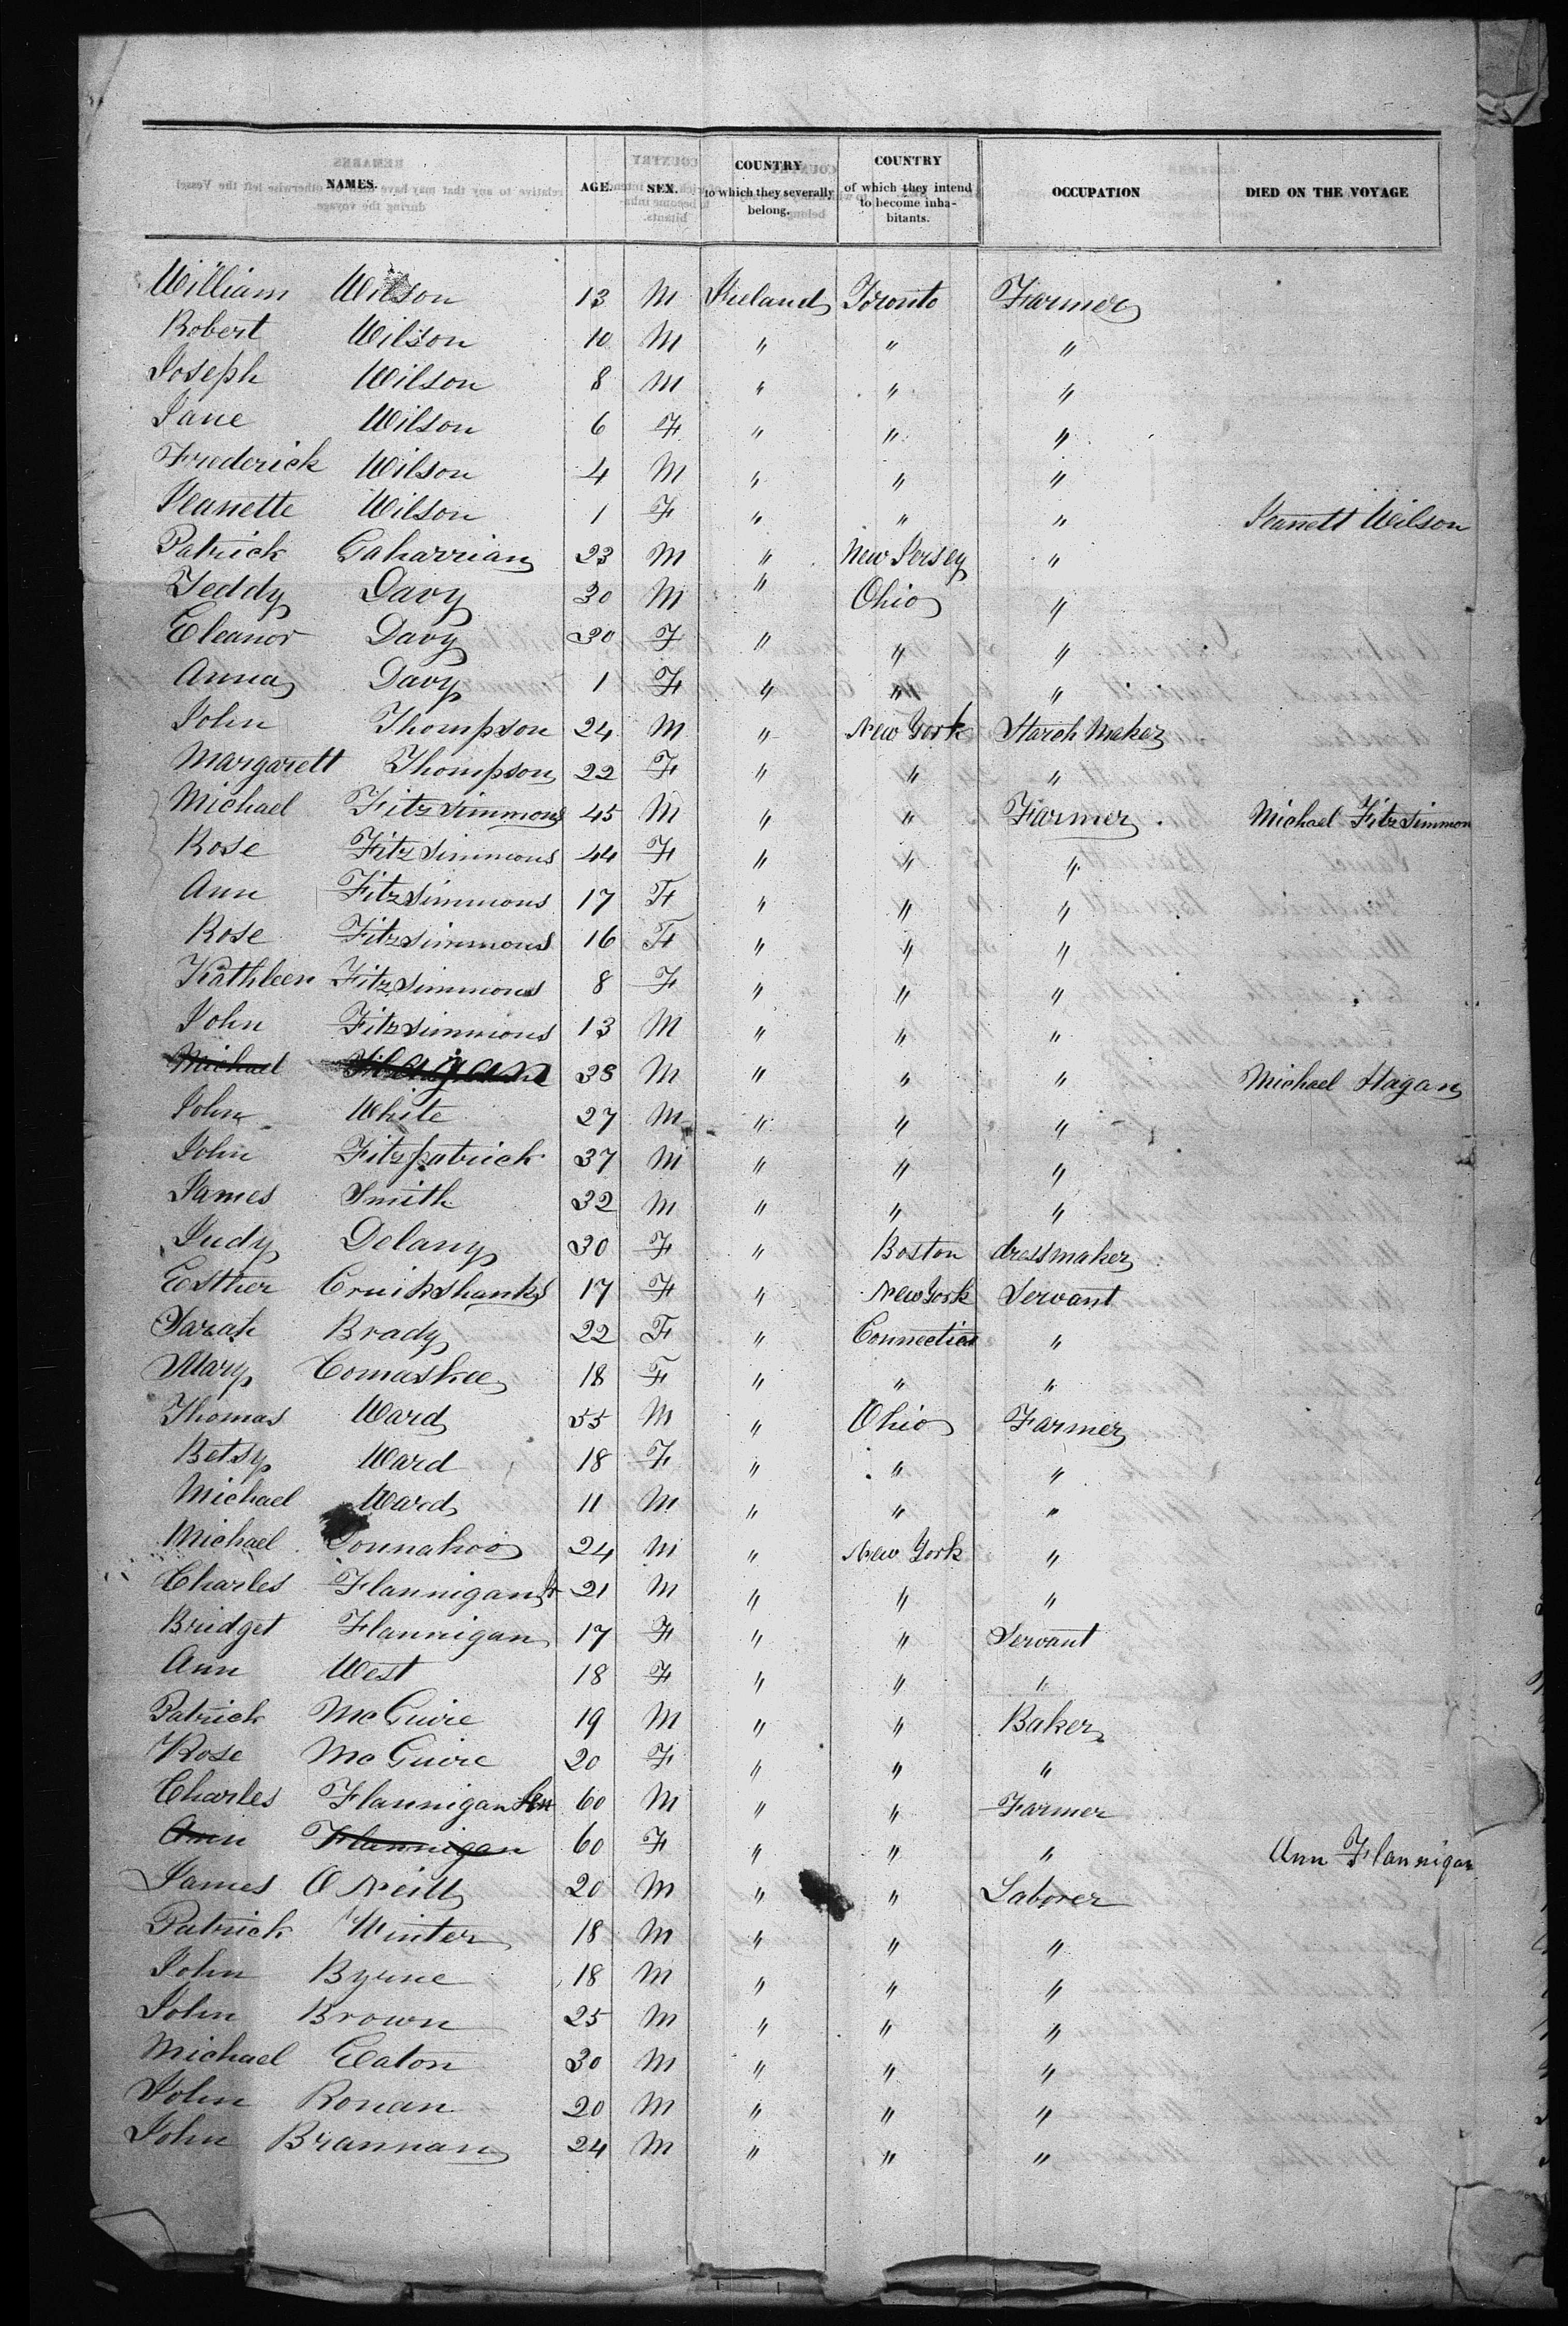 NAMES. AGE. SEX. COUNTRY to which they severally belong. COUNTRY of which they intend to become inha-bitants. OCCUPATION DIED ON THE VOYAGE
William Wilson 13 M Ireland Toronto Farmer
Robert Wilson 10 M " " "
Joseph Wilson 8 M " " "
Jane Wilson 6 F " " "
Frederick Wilson 4 M " " "
Jeanette Wilson 1 F " " " Jeanett Wilson
Patrick Gaharrian 23 M " New Jersey "
Teddy Davy 30 M " Ohio "
Eleanor Davy 30 F " " "
Anna Davy 1 F " " "
John Thompson 24 M " New York Starch Maker
Margarett Thompson 22 F " " "
Michael Fitzsimmons 45 M " " Farmer Michael Fitzsimmon
Rose Fitzsimmons 44 F " " "
Ann Fitzsimmons 17 F " " "
Rose Fitzsimmons 16 F " " "
Kathleen Fitzsimmons 8 F " " "
John Fitzsimmons 13 M " " "
Michael Hagan 38 M " " " Michael Hagan
John White 27 M " " "
John Fitzpatrick 37 M " " "
James Smith 32 M " " "
Judy Delany 30 F " Boston dressmaker
Esther Cruikshanks 17 F " New York Servant
Sarah Brady 22 F " Connecticut "
Mary Comaskee 18 F " " "
Thomas Ward 55 M " Ohio Farmer
Betsy Ward 18 F " " "
Michael Ward 11 M " " "
Michael Donnahoo 24 M " New York "
Charles Flannigan Jr 21 M " " "
Bridget Flannigan 17 F " " Servant
Ann West 18 F " " "
Patrick McGuire 19 M " " Baker
Rose McGuire 20 F " " "
Charles Flannigan Sen 60 M " " Farmer
Ann Flannigan 60 F " " " Ann Flannigan
James O Neill 20 M " " Laborer
Patrick Winter 18 M " " "
John Byrne 18 M " " "
John Brown 25 M " " "
Michael Eaton 30 M " " "
John Ronan 20 M " " "
John Brannan 24 M " " "